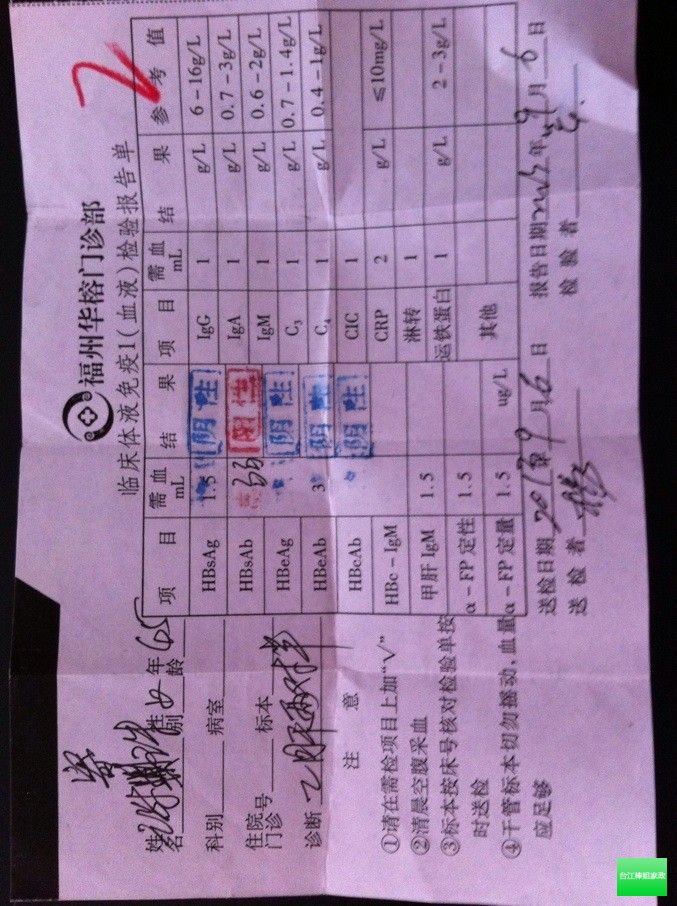 福州华榕门诊部
临床体液免疫1(血液)检验报告单
姓名 性别 女 年龄 65
科别 病室
住院门诊号 标本
诊断 乙肝两对半
注 意
①请在需检项目上加“√”
②清晨空腹采血
③标本按床号核对检验单按时送检
④干管标本切勿摇动,血量应足够
项 目 需血mL 结 果 项 目 需血mL 结 果 参 考 值
HBsAg 1.5 阴性 IgG 1 g/L 6-16g/L
HBsAb 阳性 IgA 1 g/L 0.7-3g/L
HBeAg 阴性 IgM 1 g/L 0.6-2g/L
HBeAb 3 阴性 C₃ 1 g/L 0.7-1.4g/L
HBcAb 阴性 C₄ 1 g/L 0.4-1g/L
HBc-IgM CIC 1
甲肝 IgM 1.5 CRP 2 g/L ≤10mg/L
α-FP 定性 1.5 淋转 1
α-FP 定量 1.5 ug/L 运铁蛋白 1 g/L 2-3g/L
其他
送检日期 2013年9月6日 报告日期 年9月6日
送 检 者 检 验 者
台江棒姐家政